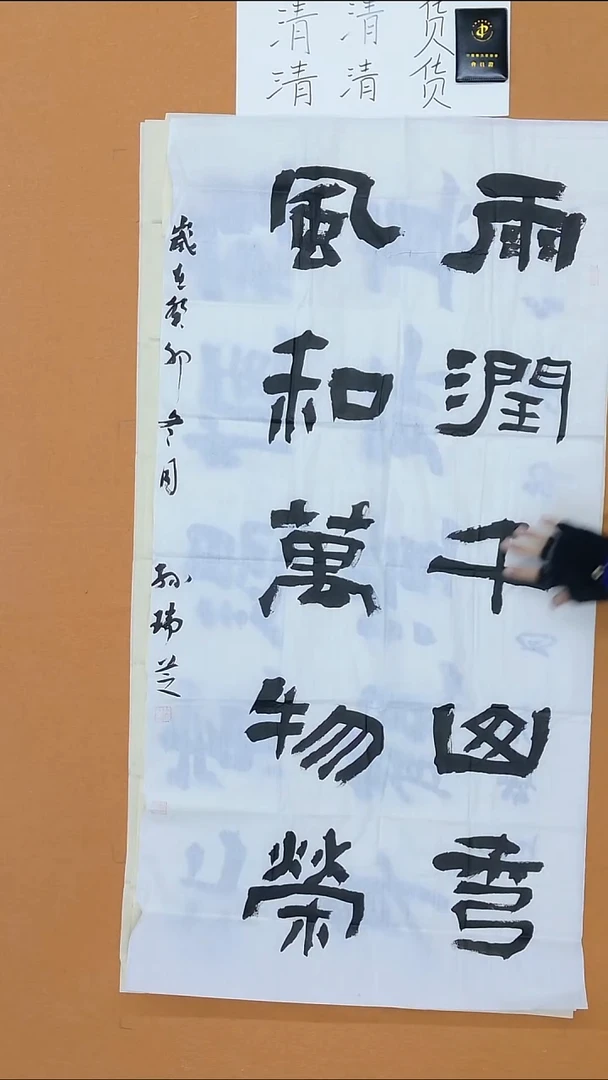 清 清 货
清 清 货
雨潤千山秀
風和萬物榮
歲在癸卯冬月
孫瑞芝